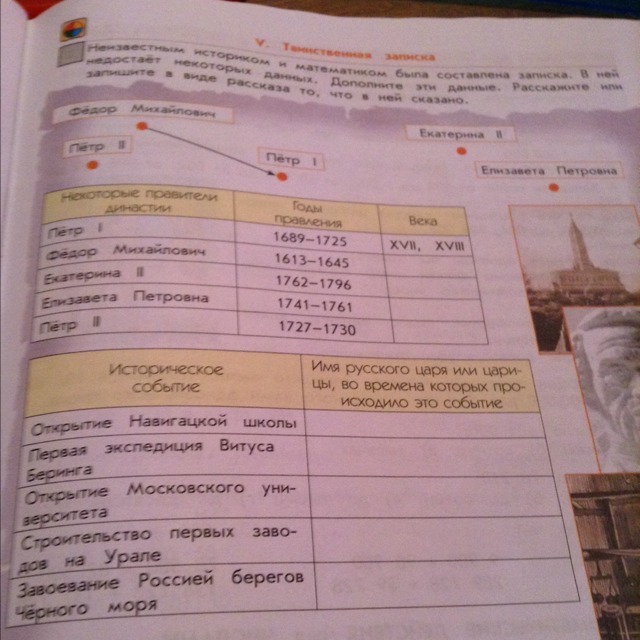 V. Таинственная записка
Неизвестным историком и математиком была составлена записка. В ней
недостаёт некоторых данных. Дополните эти данные. Расскажите или
запишите в виде рассказа то, что в ней сказано.
Фёдор Михайлович
Екатерина II
Пётр II
Пётр I
Елизавета Петровна
Некоторые правители
династии
Годы
правления
Века
Пётр I
1689–1725
XVII, XVIII
Фёдор Михайлович
1613–1645
Екатерина II
1762–1796
Елизавета Петровна
1741–1761
Пётр II
1727–1730
Историческое
событие
Имя русского царя или цари-
цы, во времена которых про-
исходило это событие
Открытие Навигацкой школы
Первая экспедиция Витуса
Беринга
Открытие Московского уни-
верситета
Строительство первых заво-
дов на Урале
Завоевание Россией берегов
Чёрного моря